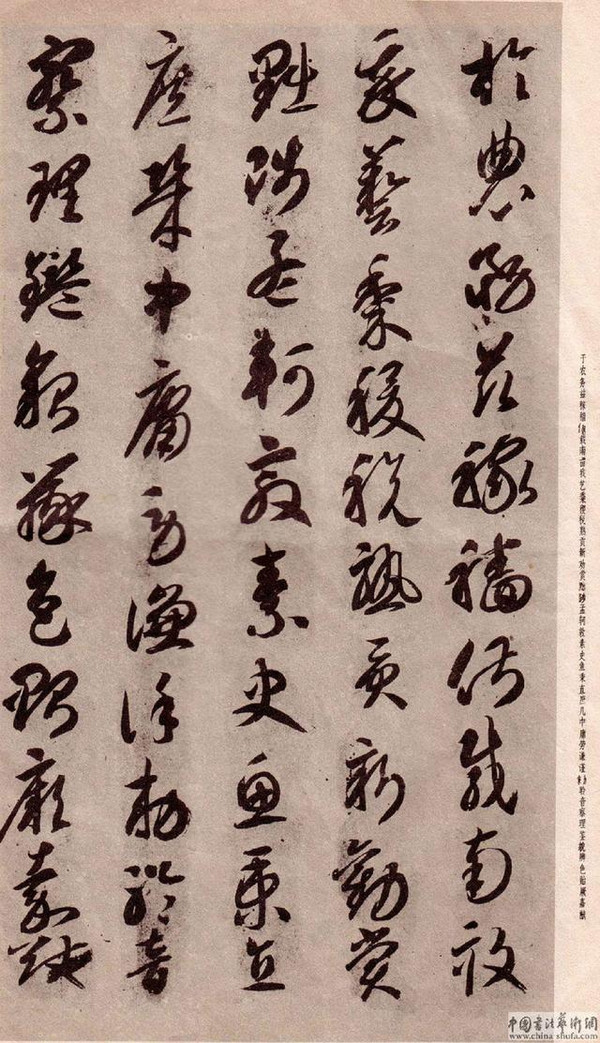 於農務茲稼穡俶載南畝
我藝黍稷稅熟貢新勸賞
黜陟孟軻敦素史魚秉直
庶幾中庸勞謙謹勅聆音
察理鑑貌辨色貽厥嘉猷
于农务兹稼穑俶载南亩我艺黍稷税熟贡新劝赏黜陟孟轲敦素史鱼秉直庶几中庸劳谦谨勅聆音察理鉴貌辨色贻厥嘉猷
中國書法藝術網
www.china-shufa.com